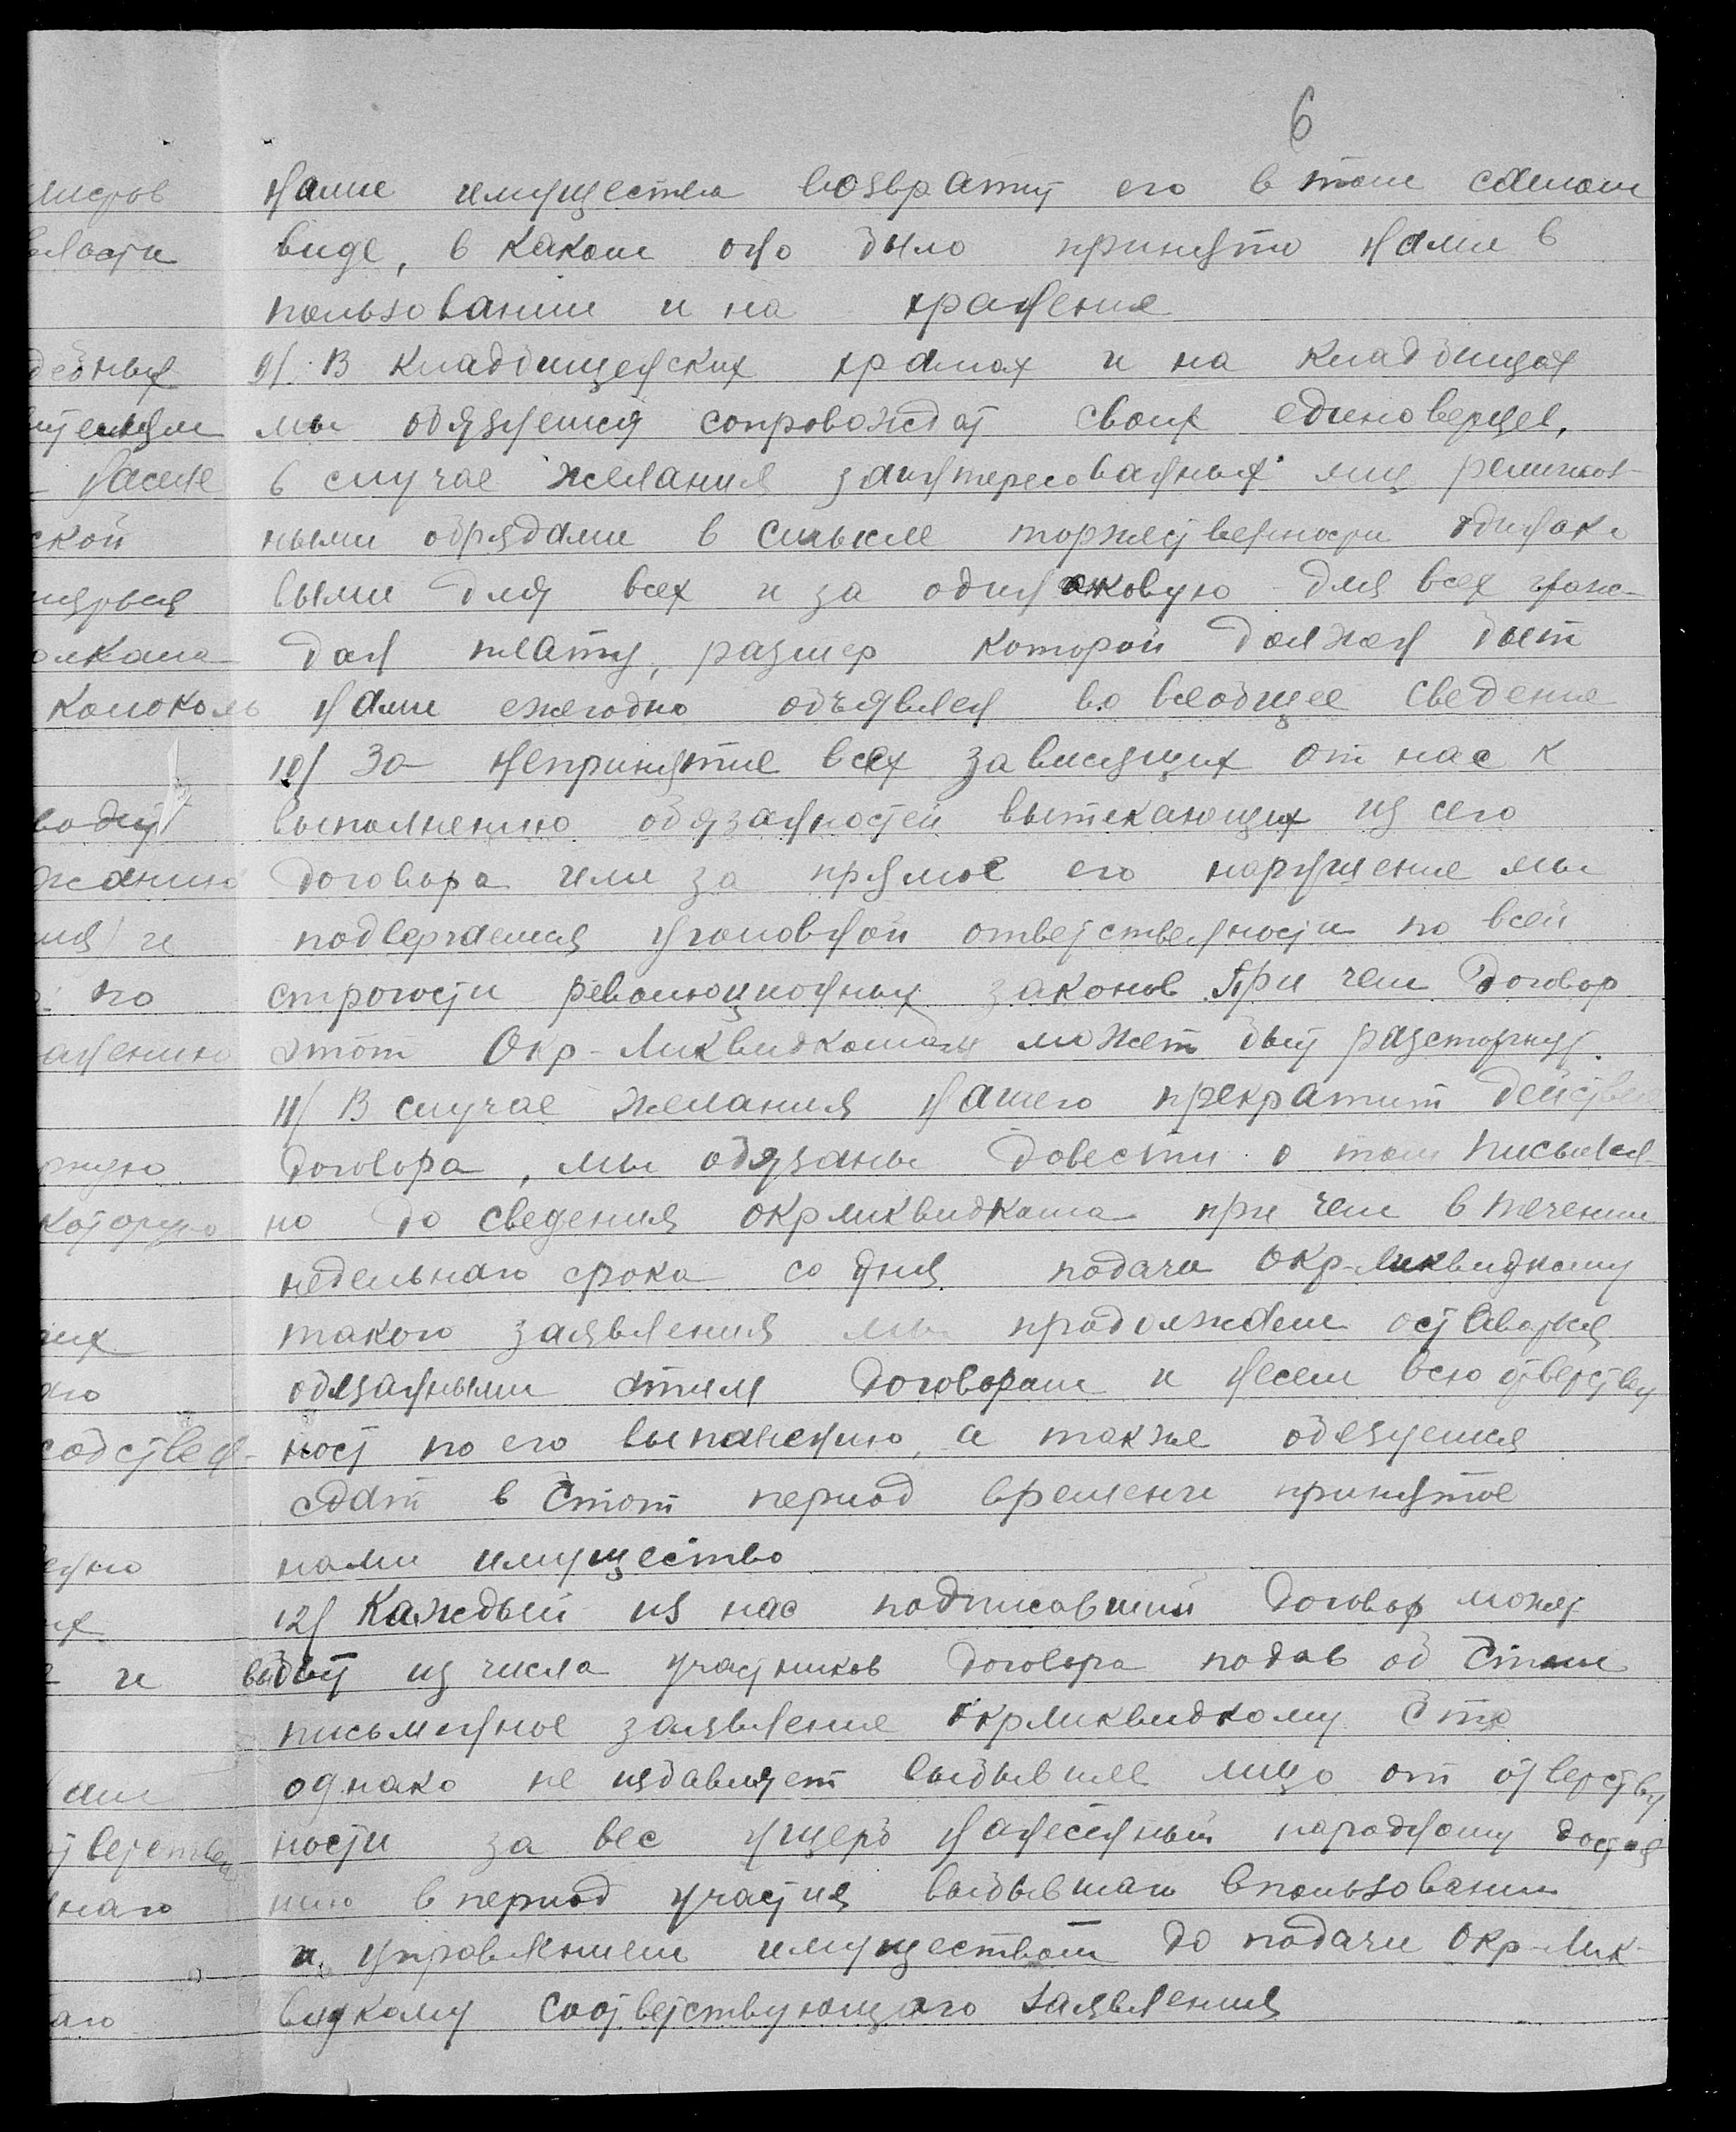 6
нами имущества возврату его в том самом
виде, в каком оно было принято нами в
пользовании и на хранение
9/ В кладбищенских храмах и на кладбищах
мы обязуемся сопровождат своих единоверцев,
в случае желания заинтересованных лиц религиоз-
ными обрядами в смысле торжественности одинако
выми для всех и за одинаковую для всех граж-
дан плату, размер которой должен быт
нами ежегодно объявлен во всеобщее сведение
10/ За непринятие всех зависящих от нас к
выполнению обязанностей вытекающих из сего
договора или за прямое его нарушение мы
подвергаемся уголовной ответственности по всей
строгости революционных законов При чем Договор
этот Окр-Ликвидкомом может быт расторгнут.
11/ В случае желания нашего прекратит действие
договора, мы обязаны довести о том письмен-
но до сведения окрликвидкома при чем в течении
недельнаго срока со дня подачи Окр-Ликвидкому
такого заявления мы продолжаем оставаться
обязанными этим Договором и несем всю ответствен
ност по его выполнению, а также обезуемся
сдат в этот период времени принятое
нами имущество
12/ Каждый из нас подписавший Договор может
выбыт из числа участников Договора подав об этом
письменное заявление Окрликвидкому Это
однако не избавляет выбывшее лицо от ответствен
ности за вес ущерб нанесенный народному достоя
нию в период участия выбывшаго в пользовании
и управлением имуществом до подачи Окр-Лик-
видкому соответствующаго заявления